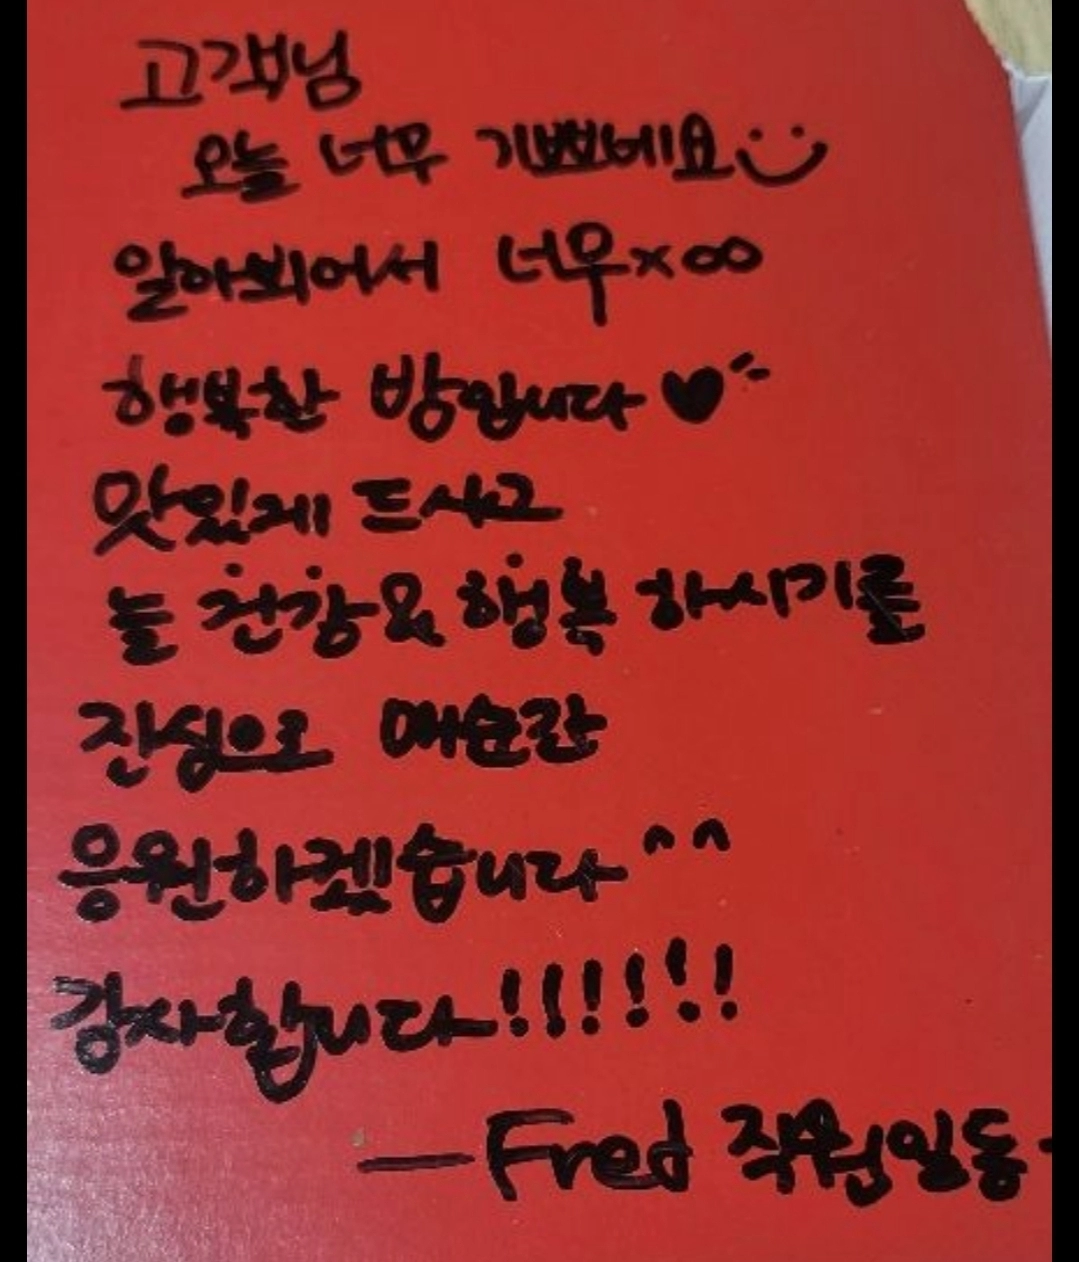 고객님
오늘 너무 기쁘네요
알아뵈어서 너무×∞
행복한 밤입니다♥
맛있게 드시고
늘 건강&행복 하시기를
진심으로 매순간
응원하겠습니다^^
감사합니다!!!!!!
—Fred 직원일동-